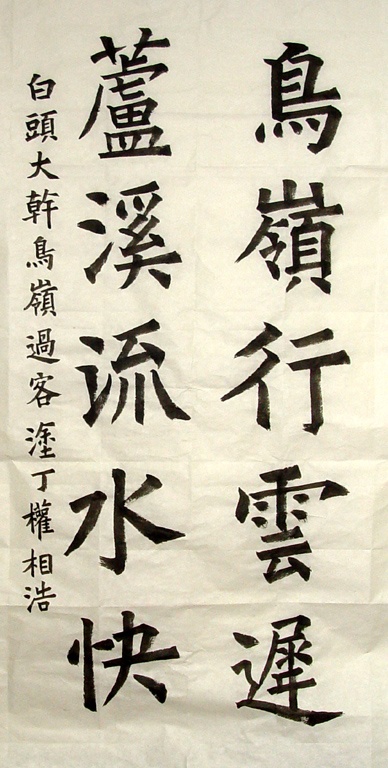 鳥嶺行雲遲
蘆溪流水快
白頭大幹鳥嶺過客塗丁權相浩